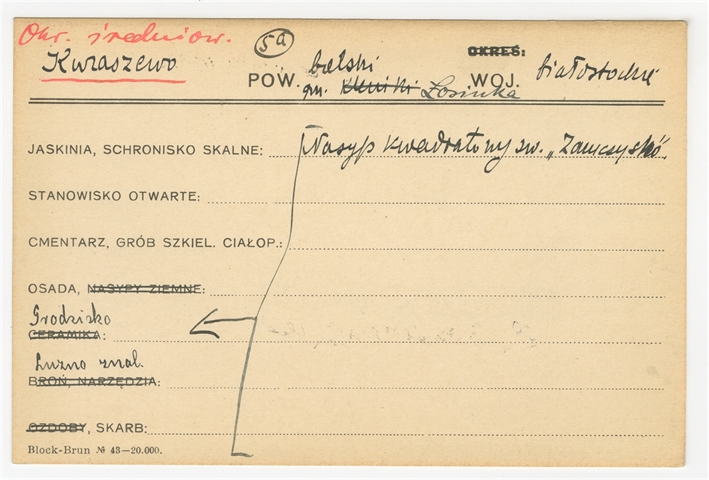 Okr. średniow.
Kuraszewo
5a
POW. bielski OKRES:
gm. Kleniki Łosinka WOJ. białostockie
JASKINIA, SCHRONISKO SKALNE: Nasyp kwadratowy zw. „Zamczysko”
STANOWISKO OTWARTE:
CMENTARZ, GRÓB SZKIEL. CIAŁOP.:
OSADA, NASYPY ZIEMNE:
Grodzisko
CERAMIKA:
Luźno znal.
BROŃ, NARZĘDZIA:
OZDOBY, SKARB:
Block-Brun № 43—20.000.